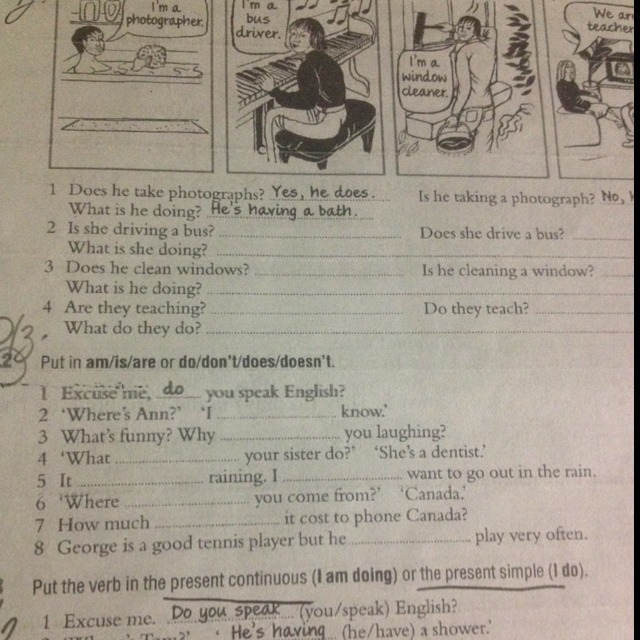 I'm a
photographer.
I'm a
bus
driver.
I'm a
window
cleaner.
We
teacher
1 Does he take photographs? Yes, he does. Is he taking a photograph? No,
What is he doing? He's having a bath.
2 Is she driving a bus? Does she drive a bus?
What is she doing?
3 Does he clean windows? Is he cleaning a window?
What is he doing?
4 Are they teaching? Do they teach?
What do they do?
Put in am/is/are or do/don't/does/doesn't.
1 Excuse me, do you speak English?
2 'Where's Ann?' 'I know.'
3 What's funny? Why you laughing?
4 'What your sister do?' 'She's a dentist.'
5 It raining. I want to go out in the rain.
6 'Where you come from?' 'Canada.'
7 How much it cost to phone Canada?
8 George is a good tennis player but he play very often.
Put the verb in the present continuous (I am doing) or the present simple (I do).
1 Excuse me. Do you speak (you/speak) English?
He's having (he/have) a shower.'